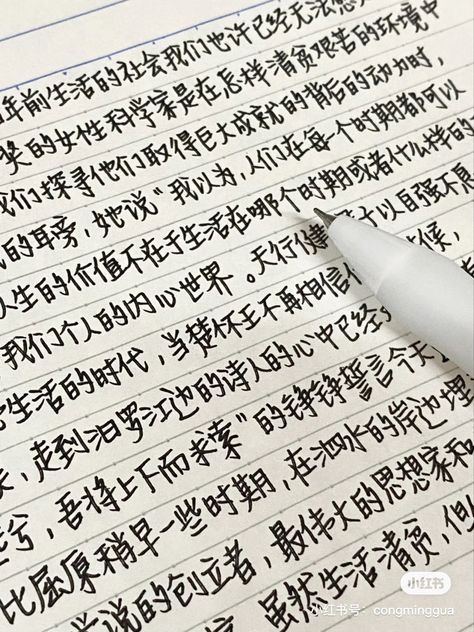 年前生活的社会我们也许已经无法想
奖的女性科学家是在怎样清贫艰苦的环境中
我们探寻他们取得巨大成就的背后的动力时，
的耳旁，她说“我以为，人们在每一个时期都可以
人生的价值不在于生活在哪个时期或者什么样的
我们个人的内心世界。天行健 以自强不息
生活的时代，当楚怀王不再相信 候，
走到汨罗江边的诗人的心中已经
兮，吾将上下而求索”的铮铮誓言今天
比屈原稍早一些时期，在泗水的岸边埋
学说的创立者，最伟大的思想家和
虽然生活清贫，但
小红书
小红书号：congminggua